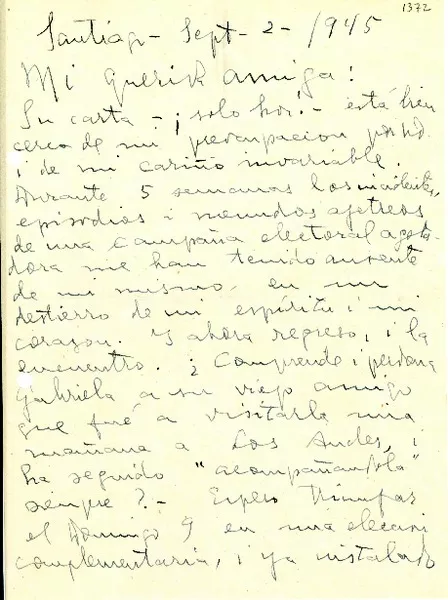 1372
Santiago - Sept - 2 - / 945
Mi querida amiga!
Su carta - ¡solo hoi! - está bien
cerca de mi preocupacion por ud.
i de mi cariño invariable.
Durante 5 semanas los incidentes,
episodios i menudos ajetreos
de una campaña electoral agota-
dora me han tenido ausente
de mi mismo, en un
destierro de mi espíritu i mi
corazon. Y ahora regreso, i la
encuentro. ¿Comprende i perdona
Gabriela a su viejo amigo
que fué a visitarla una
mañana a Los Andes, i
ha seguido "acompañandola"
siempre? - Espero triunfar
el Domingo 9 en una eleccion
complementaria, i ya instalado